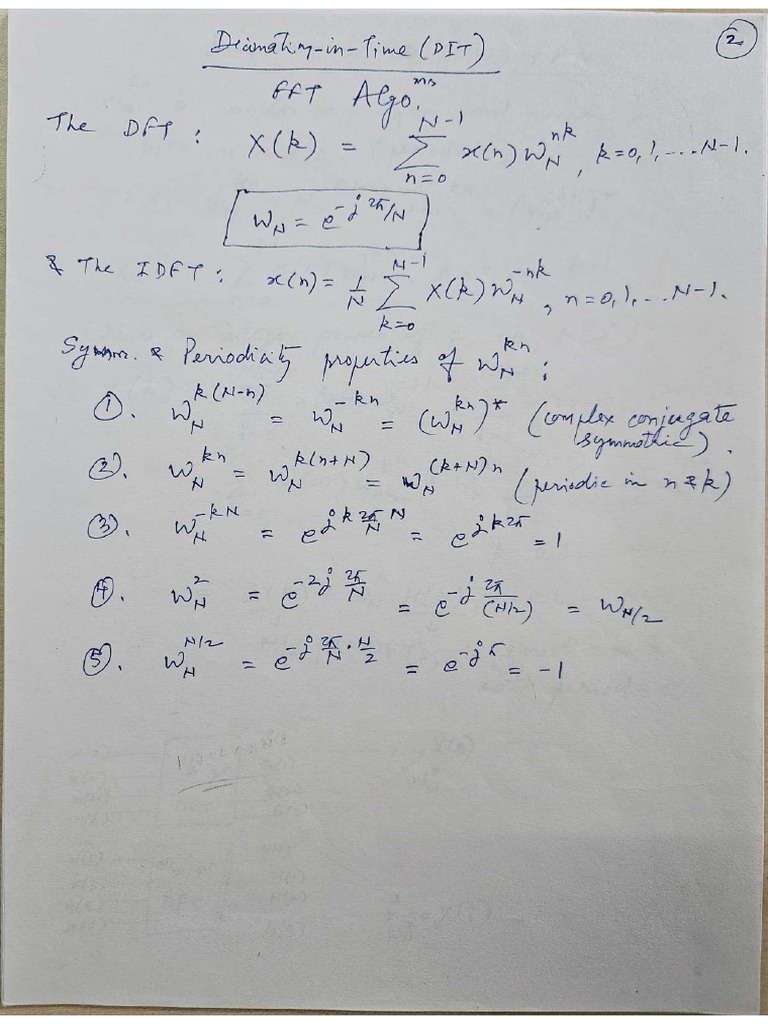 2
Decimation-in-Time (DIT)
FFT Algo.ms
The DFT : X(k) = ∑_{n=0}^{N-1} x(n) W_N^{nk}, k=0,1,...N-1.
W_N = e^{-j 2π/N}
& The IDFT : x(n) = 1/N ∑_{k=0}^{N-1} X(k) W_N^{-nk}, n=0,1,...N-1.
Symm. & Periodicity properties of W_N^{kn} :
①. W_N^{k(N-n)} = W_N^{-kn} = (W_N^{kn})* (complex conjugate
symmetric).
②. W_N^{kn} = W_N^{k(n+N)} = W_N^{(k+N)n} (periodic in n & k)
③. W_N^{-kN} = e^{jk 2π/N N} = e^{jk2π} = 1
④. W_N^2 = e^{-2j 2π/N} = e^{-j 2π/(N/2)} = W_{N/2}
⑤. W_N^{N/2} = e^{-j 2π/N · N/2} = e^{-jπ} = -1